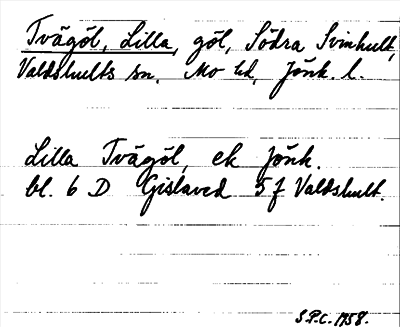 Tvägöl, Lilla, göl, Södra Svinhult,
Valdshults sn. Mo hd, Jönk. l.
Lilla Tvägöl, ek Jönk.
bl. 6 D Gislaved 5f Valdshult.
S.P.C. 1958.